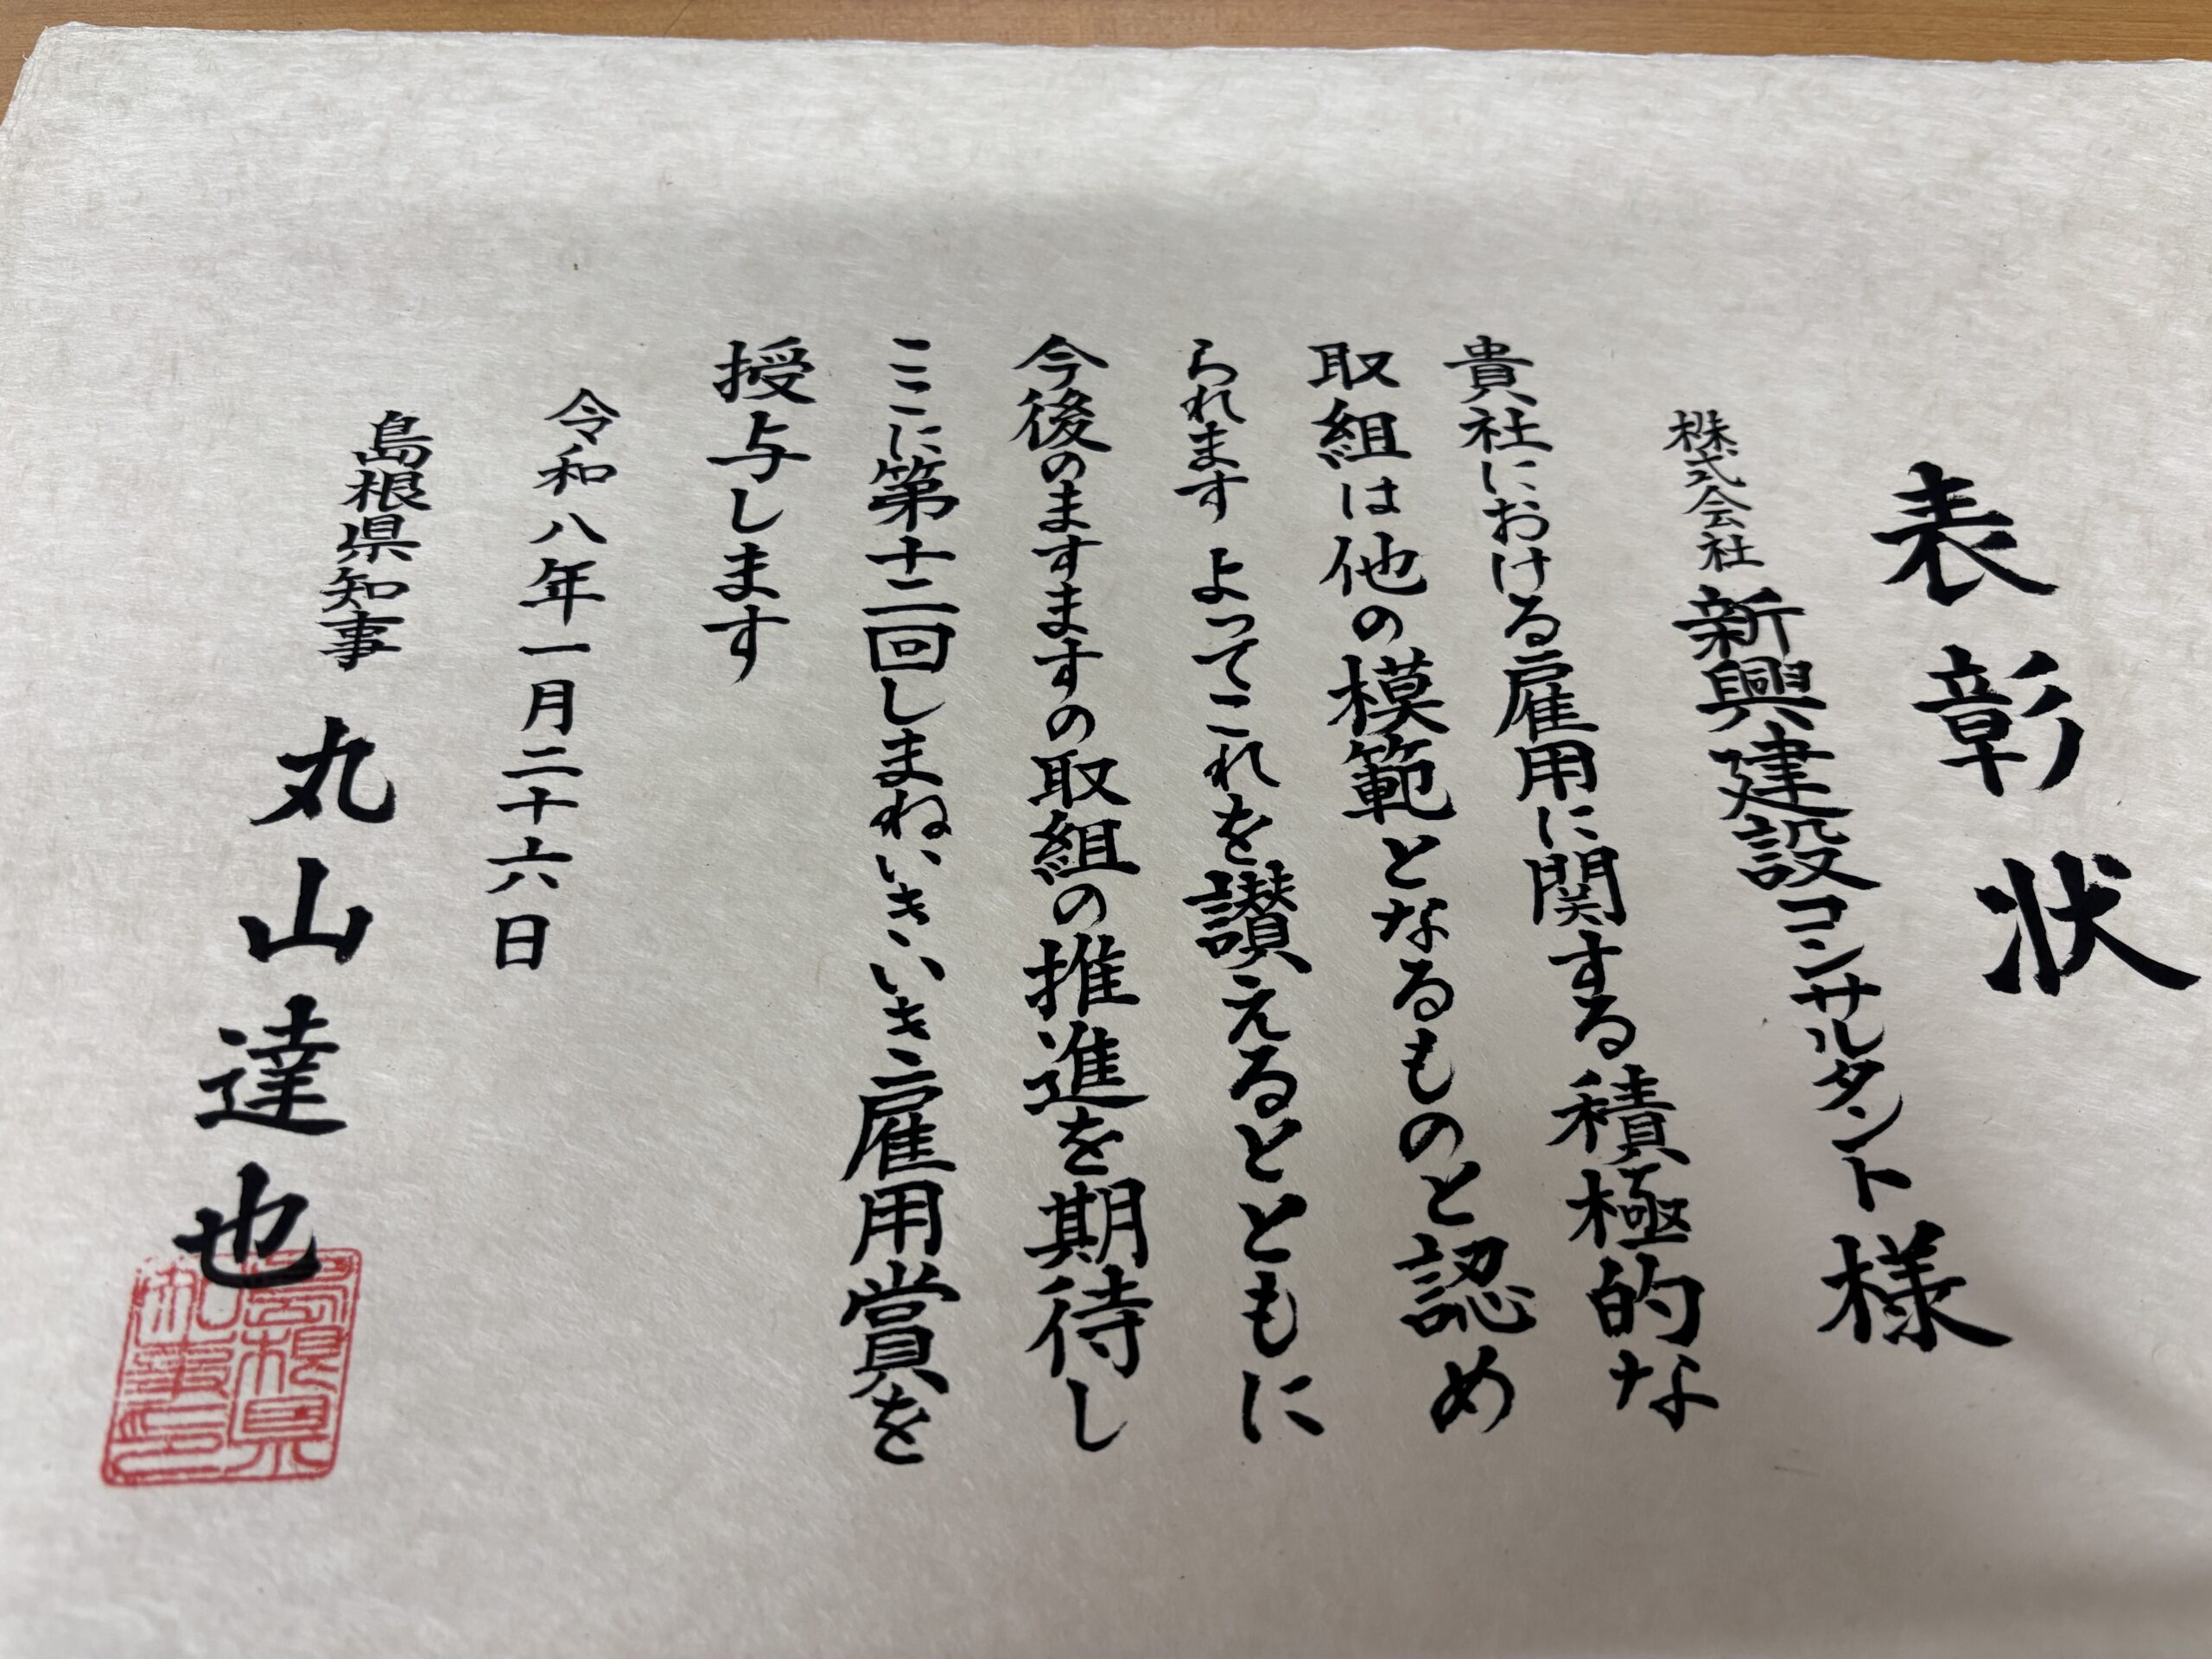 表彰状
株式会社新興建設コンサルタント様
貴社における雇用に関する積極的な
取組は他の模範となるものと認め
られます よってこれを讃えるとともに
今後のますますの取組の推進を期待し
ここに第十二回しまねいきいき雇用賞を
授与します
令和八年一月二十六日
島根県知事 丸山達也
島根県
知事印